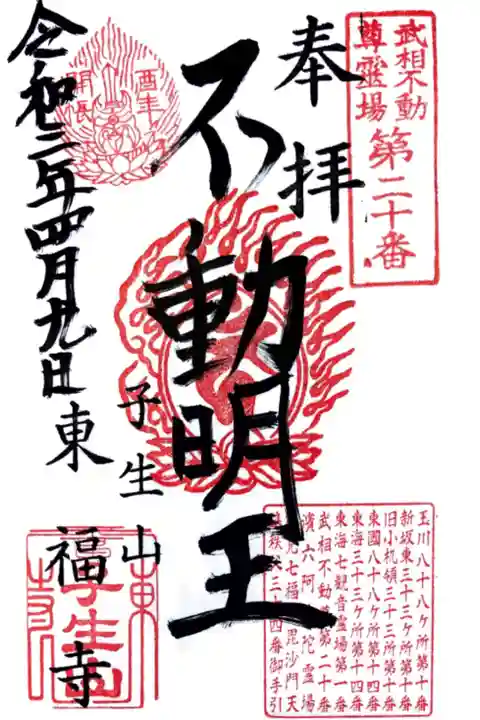 武相不動
尊霊場
第二十番
奉拝
不動明王
酉年
開帳
子生山
東福寺
令和三年四月九日
玉川八十八ヶ所第十番
新坂東三十三ヶ所第十番
旧小机領三十三所第十番
東國八十八ヶ所第十四番
東海三十三ヶ所第十四番
東海七観音霊場第一番
武相不動尊第二十番
六阿陀霊場
七福毘沙門天
番御手引